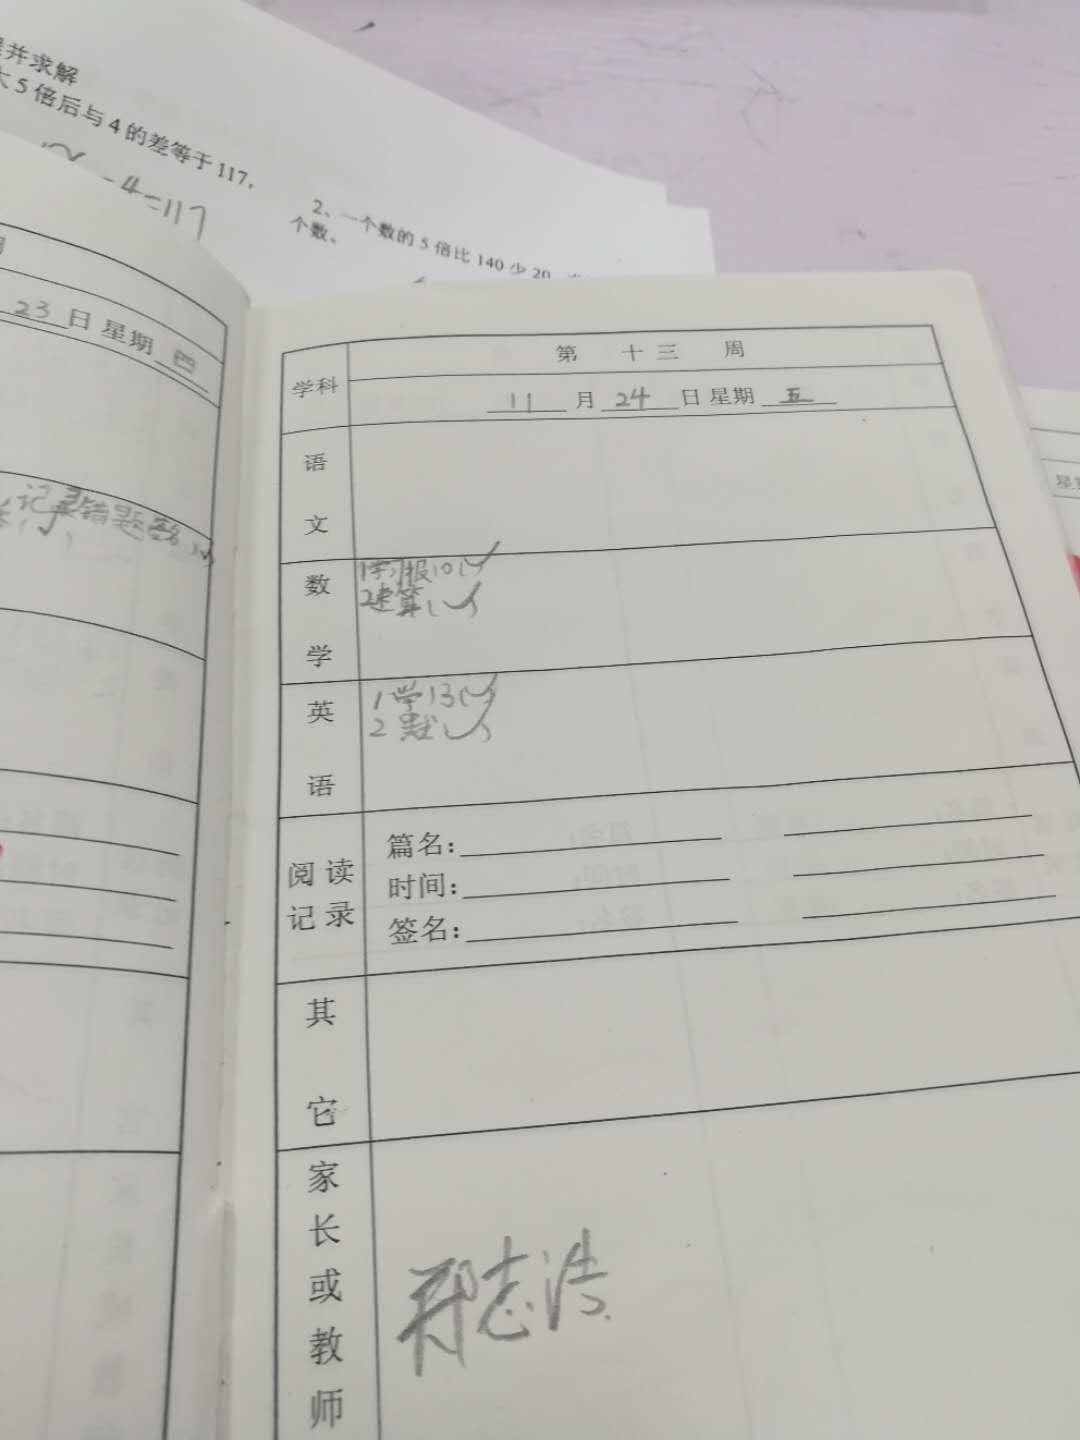 并求解
大5倍后与4的差等于117,
-4=117
2、一个数的5倍比140少20,
个数、
23日星期四
记录错题
学科
第 十三 周
11月24日星期五
语文
数学
1学习报10(✓)
2速算(✓)
英语
1学13(✓)
2默(✓)
阅读记录
篇名:
时间:
签名:
其它
家长或教师
志浩
星